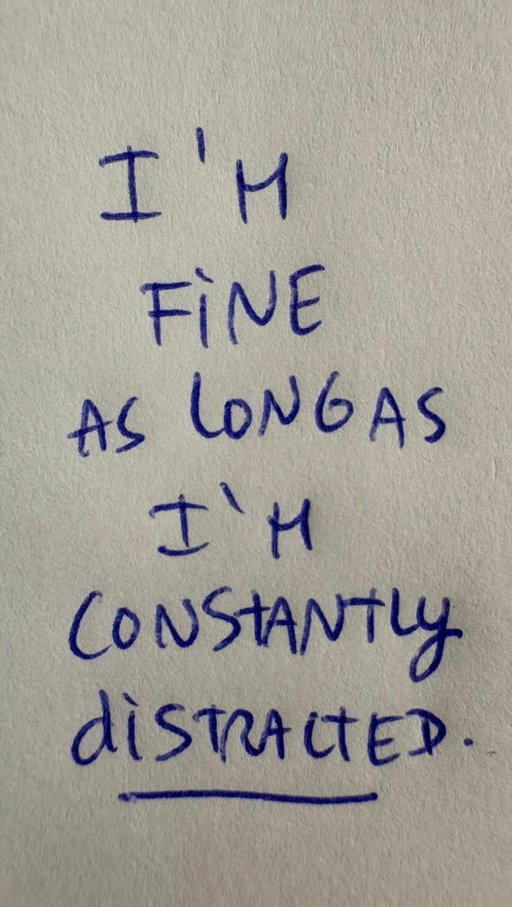 I'M
FiNE
AS LONG AS
I'M
CONSTANTLy
diSTRACTED.